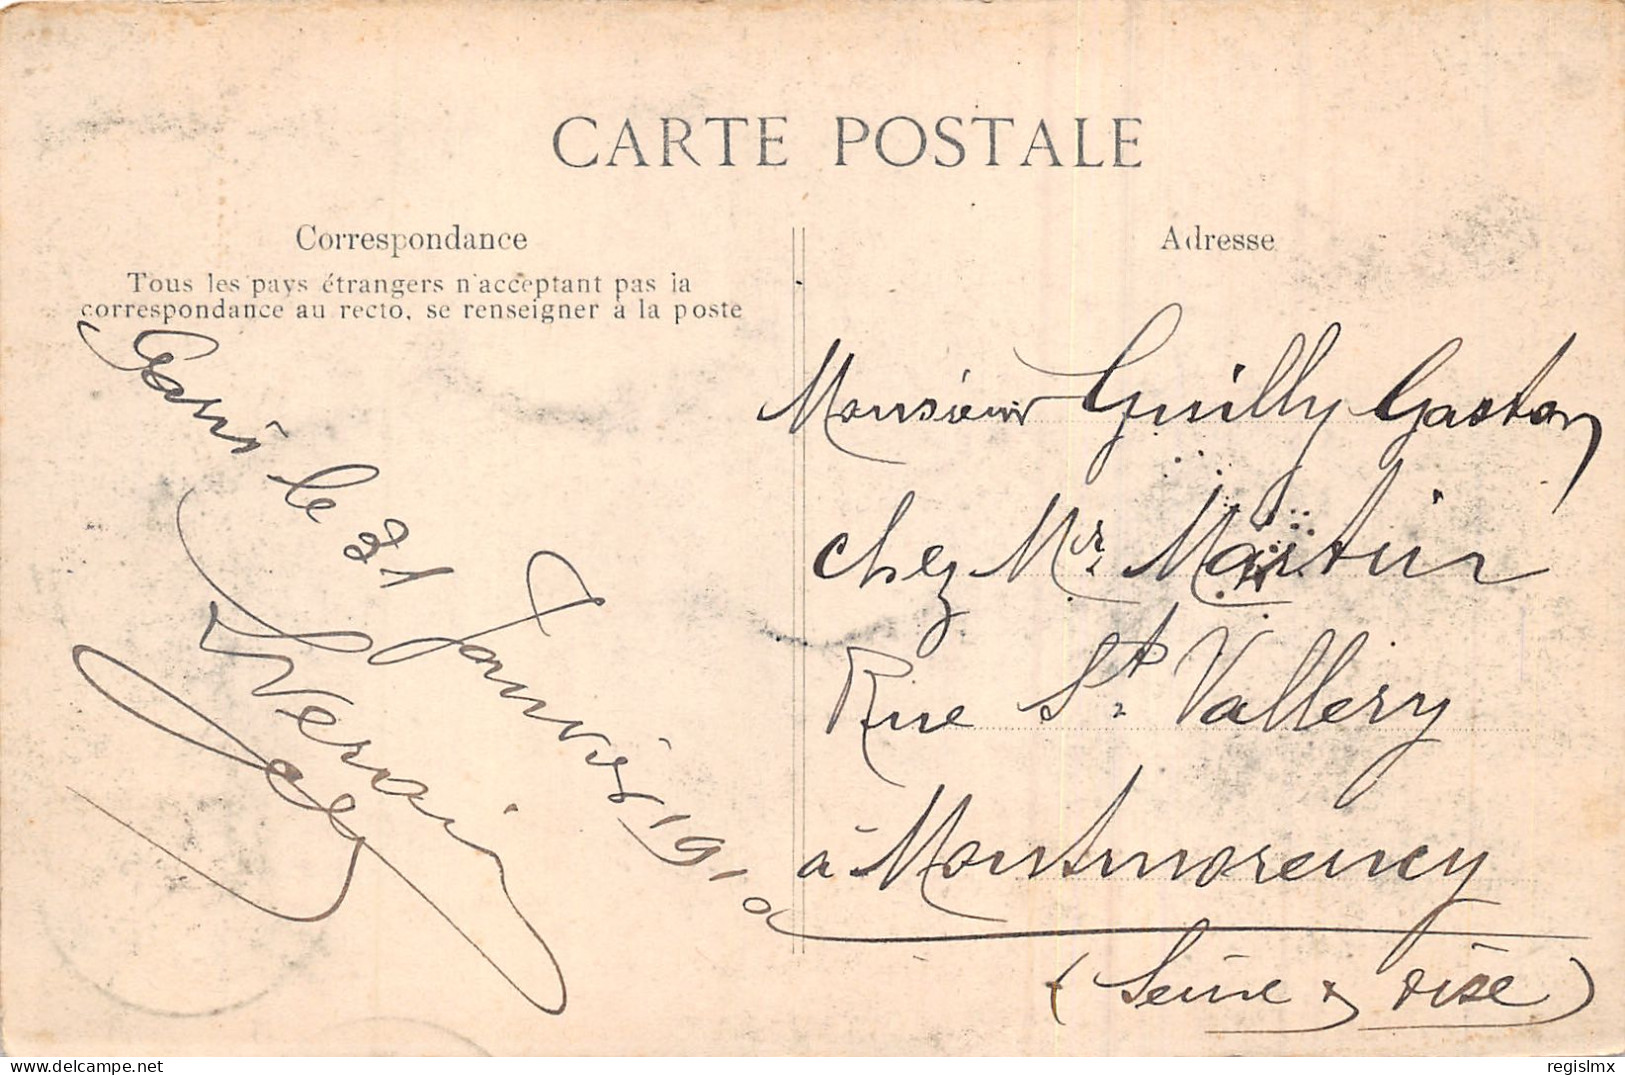 CARTE POSTALE
Correspondance
Tous les pays étrangers n'acceptant pas la
correspondance au recto, se renseigner à la poste
Paris le 31 Janvier 1910
Adresse
Monsieur Guilly Gaston
chez Mr. Martin
Rue St. Vallery
à Montmorency
(Seine & Oise)
www.delcampe.net
regislmx